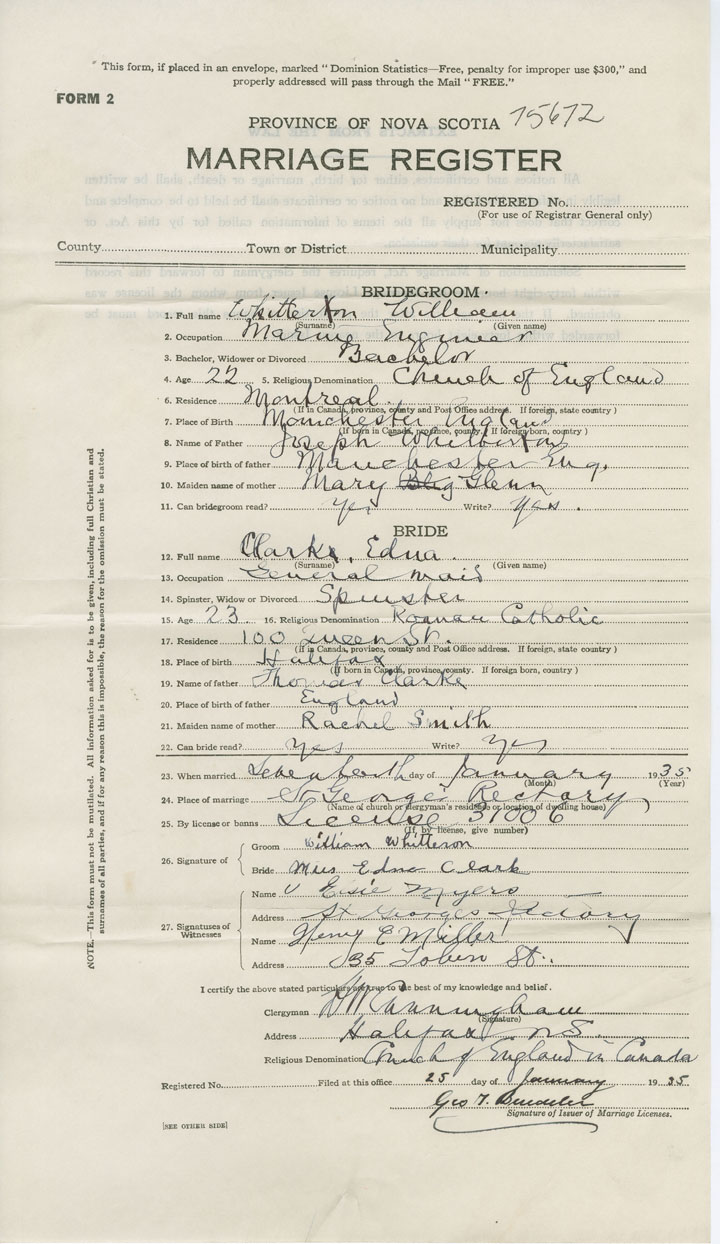 "This form, if placed in an envelope, marked "Dominion Statistics—Free, penalty for improper use $300," and
properly addressed will pass through the Mail "FREE."
FORM 2
PROVINCE OF NOVA SCOTIA 15672
MARRIAGE REGISTER
REGISTERED No.
(For use of Registrar General only)
County Town or District Municipality
BRIDEGROOM
1. Full name Whitterton William
(Surname) (Given name)
2. Occupation Marine Engineer
3. Bachelor, Widower or Divorced Bachelor
4. Age 22 5. Religious Denomination Church of England
6. Residence Montreal
(If in Canada, province, county and Post Office address. If foreign, state country)
7. Place of Birth Manchester England
(If born in Canada, province, county. If foreign born, country)
8. Name of Father Joseph Whitterton
9. Place of birth of father Manchester Eng.
10. Maiden name of mother Mary Glenn
11. Can bridegroom read? yes Write? yes.
BRIDE
12. Full name Clarke, Edna
(Surname) (Given name)
13. Occupation General maid
14. Spinster, Widow or Divorced Spinster
15. Age 23 16. Religious Denomination Roman Catholic
17. Residence 100 Queen St.
(If in Canada, province, county and Post Office address. If foreign, state country)
18. Place of birth Halifax
(If born in Canada, province, county. If foreign born, country)
19. Name of father Thomas Clarke
20. Place of birth of father England
21. Maiden name of mother Rachel Smith
22. Can bride read? yes Write? yes
23. When married day of January 1935
(Month) (Year)
24. Place of marriage St George's Rectory,
(Name of church or clergyman's residence or location of dwelling house)
25. By license or banns License 31006
(If, by license, give number)
26. Signature of
Groom William Whitterson
Bride Miss Edna Clark
27. Signatures of Witnesses
Name Elsie Myers
Address St Georges Rectory
Name Henry E Miller
Address 35 Tobin St.
I certify the above stated particulars are true to the best of my knowledge and belief.
Clergyman Cunningham
(Signature)
Address Halifax N.S.
Religious Denomination Church of England in Canada
Registered No. Filed at this office 25 day of January 1935
Geo T.
Signature of Issuer of Marriage Licenses.
[SEE OTHER SIDE]
NOTE.—This form must not be mutilated. All information asked for is to be given, including full Christian and
surnames of all parties, and if for any reason this is impossible, the reason for the omission must be stated.